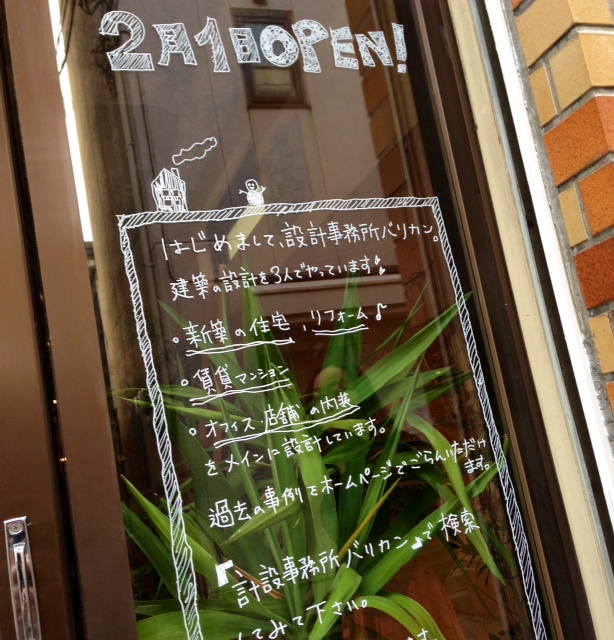 2月1日OPEN!
はじめまして、設計事務所バリカン。
建築の設計を3人でやっています♪
○新築の住宅、リフォーム♪
○賃貸マンション
○オフィス・店舗の内装
をメインに設計しています。
過去の事例をホームページでごらんいただけ
ます。
『計設事務所バリカン』で検索
してみて下さい。